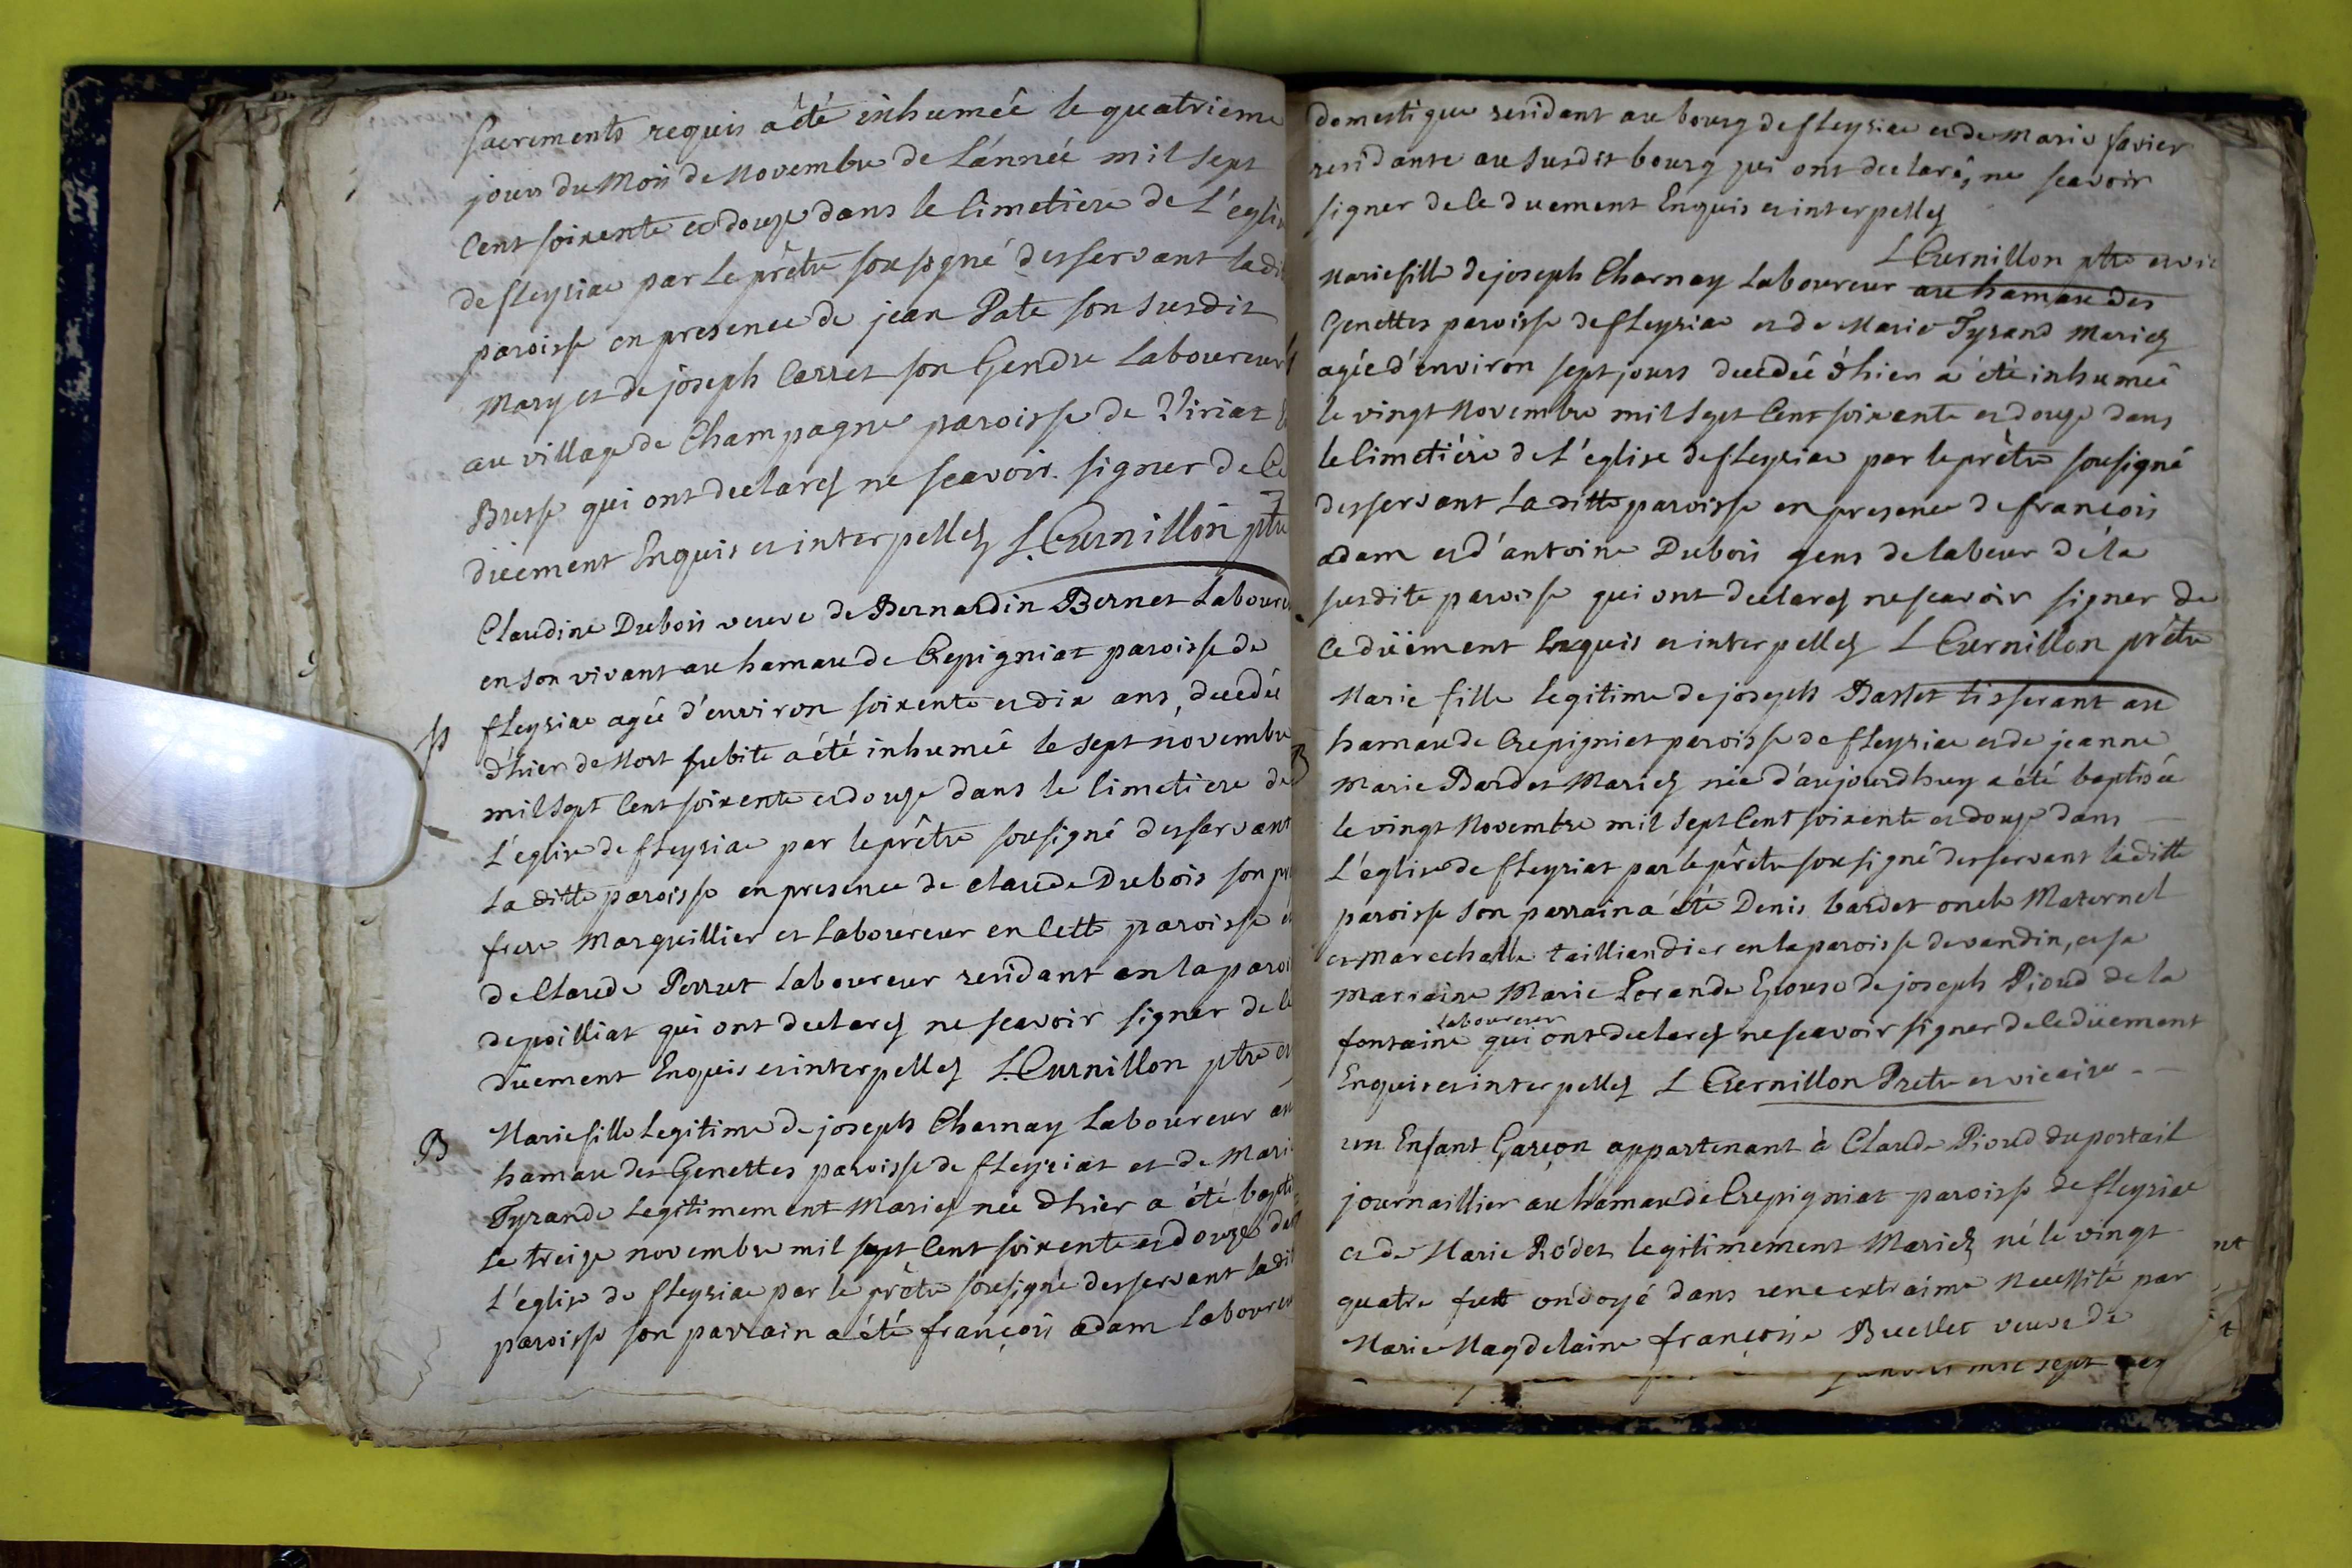 sacrements requis a été inhumée le quatrieme
jour du Mois de Novembre de L'année mil sept
Cent soixente et douze dans le Cimetiere de L'eglise
de fleyriac par Le prêtre sousigné desservant ladi
paroisse en presence de jean Pate son Susdit
Mary et de joseph Carret son Gendre Laboureur
au village de Champagne paroisse de Viriat
Bresse qui ont declarez ne sçavoir signer de Ce
düement Enquis et interpellez L. Curnillon ptre
Claudine Dubois veuve de Bernardin Bernet Laboure
en son vivant au hamau de Crepigniat paroisse de
fleyriac agée d'environ soixente et dix ans, decedée
d'hier de Mort subite a été inhumée le sept novembre
mil sept Cent soixente et douze dans le Cimetiere de
L'eglise de fleyriac par le prêtre sousigné desservant
La ditte paroisse en presence de claude Dubois son
frere Marguillier et Laboureur en Cette paroisse et
de Claude Perrut Laboureur residant en la paroi
de poilliat qui ont declarez ne sçavoir signer de Ce
düement Enquis et interpellez L. Curnillon ptre et
B Marie fille Legitime de joseph Charnay Laboureur au
hamau des Genettes paroisse de fleyriat et de Mari
Tyrande Legitimement Mariez née d'hier a été bapti
Le treize novembre mil sept Cent soixente et douze dans
L'eglise de fleyriac par le prêtre sousigné desservant ladi
paroisse son parrain a été françois adam Laboureu
domestique residant au bourg de fleyriac et de Marie favier
residante au susdit bourg qui ont declaré, ne sçavoir
signer de Ce duement Enquis et interpellez
L Curnillon ptre et vic
Marie fille de joseph Charnay Laboureur au hamau des
Genettes paroisse de fleyriac et de Marie Tyrand Mariez
agée d'environ sept jours decedée d'hier a été inhumée
le vingt Novembre mil Sept Cent soixente et douze dans
le Cimetiére de L'eglise de fleyriac par le prêtre sousigné
desservant La ditte paroisse en presence de françois
adam et d'antoine Dubois gens de labeur de la
susdite paroisse qui ont declarez ne scavoir signer de
Ce düement Enquis et interpellez L Curnillon prêtre
B Marie fille Legitime de joseph Bastet tisserant au
hamau de Crepigniat paroisse de fleyriac et de jeanne
Marie Bardet Mariez née d'aujourdhuy a été baptisée
le vingt Novembre mil Sept Cent soixente et douze dans
L'eglise de fleyriat par le prêtre sousigné desservant laditte
paroisse son parrain a été Denis bardet oncle Maternel
et Marechalle tailliandier en la paroisse de vandin, et sa
marraine Marie Lorande Epouse de joseph Pioud de la
laboureur
fontaine qui ont declarez ne scavoir signer de Ce düement
Enquis et interpellez L Curnillon Pretre et vicaire
un Enfant Garçon appartenant à Claude Pioud du portail
journaillier au hamau de Crepigniat paroisse de fleyriac
et de Marie Rodet legitimement Mariez né le vingt
quatre fut ondoyé dans une extraime Necessité par
Marie Magdelaine françoise Buellet veuve de
mil sept